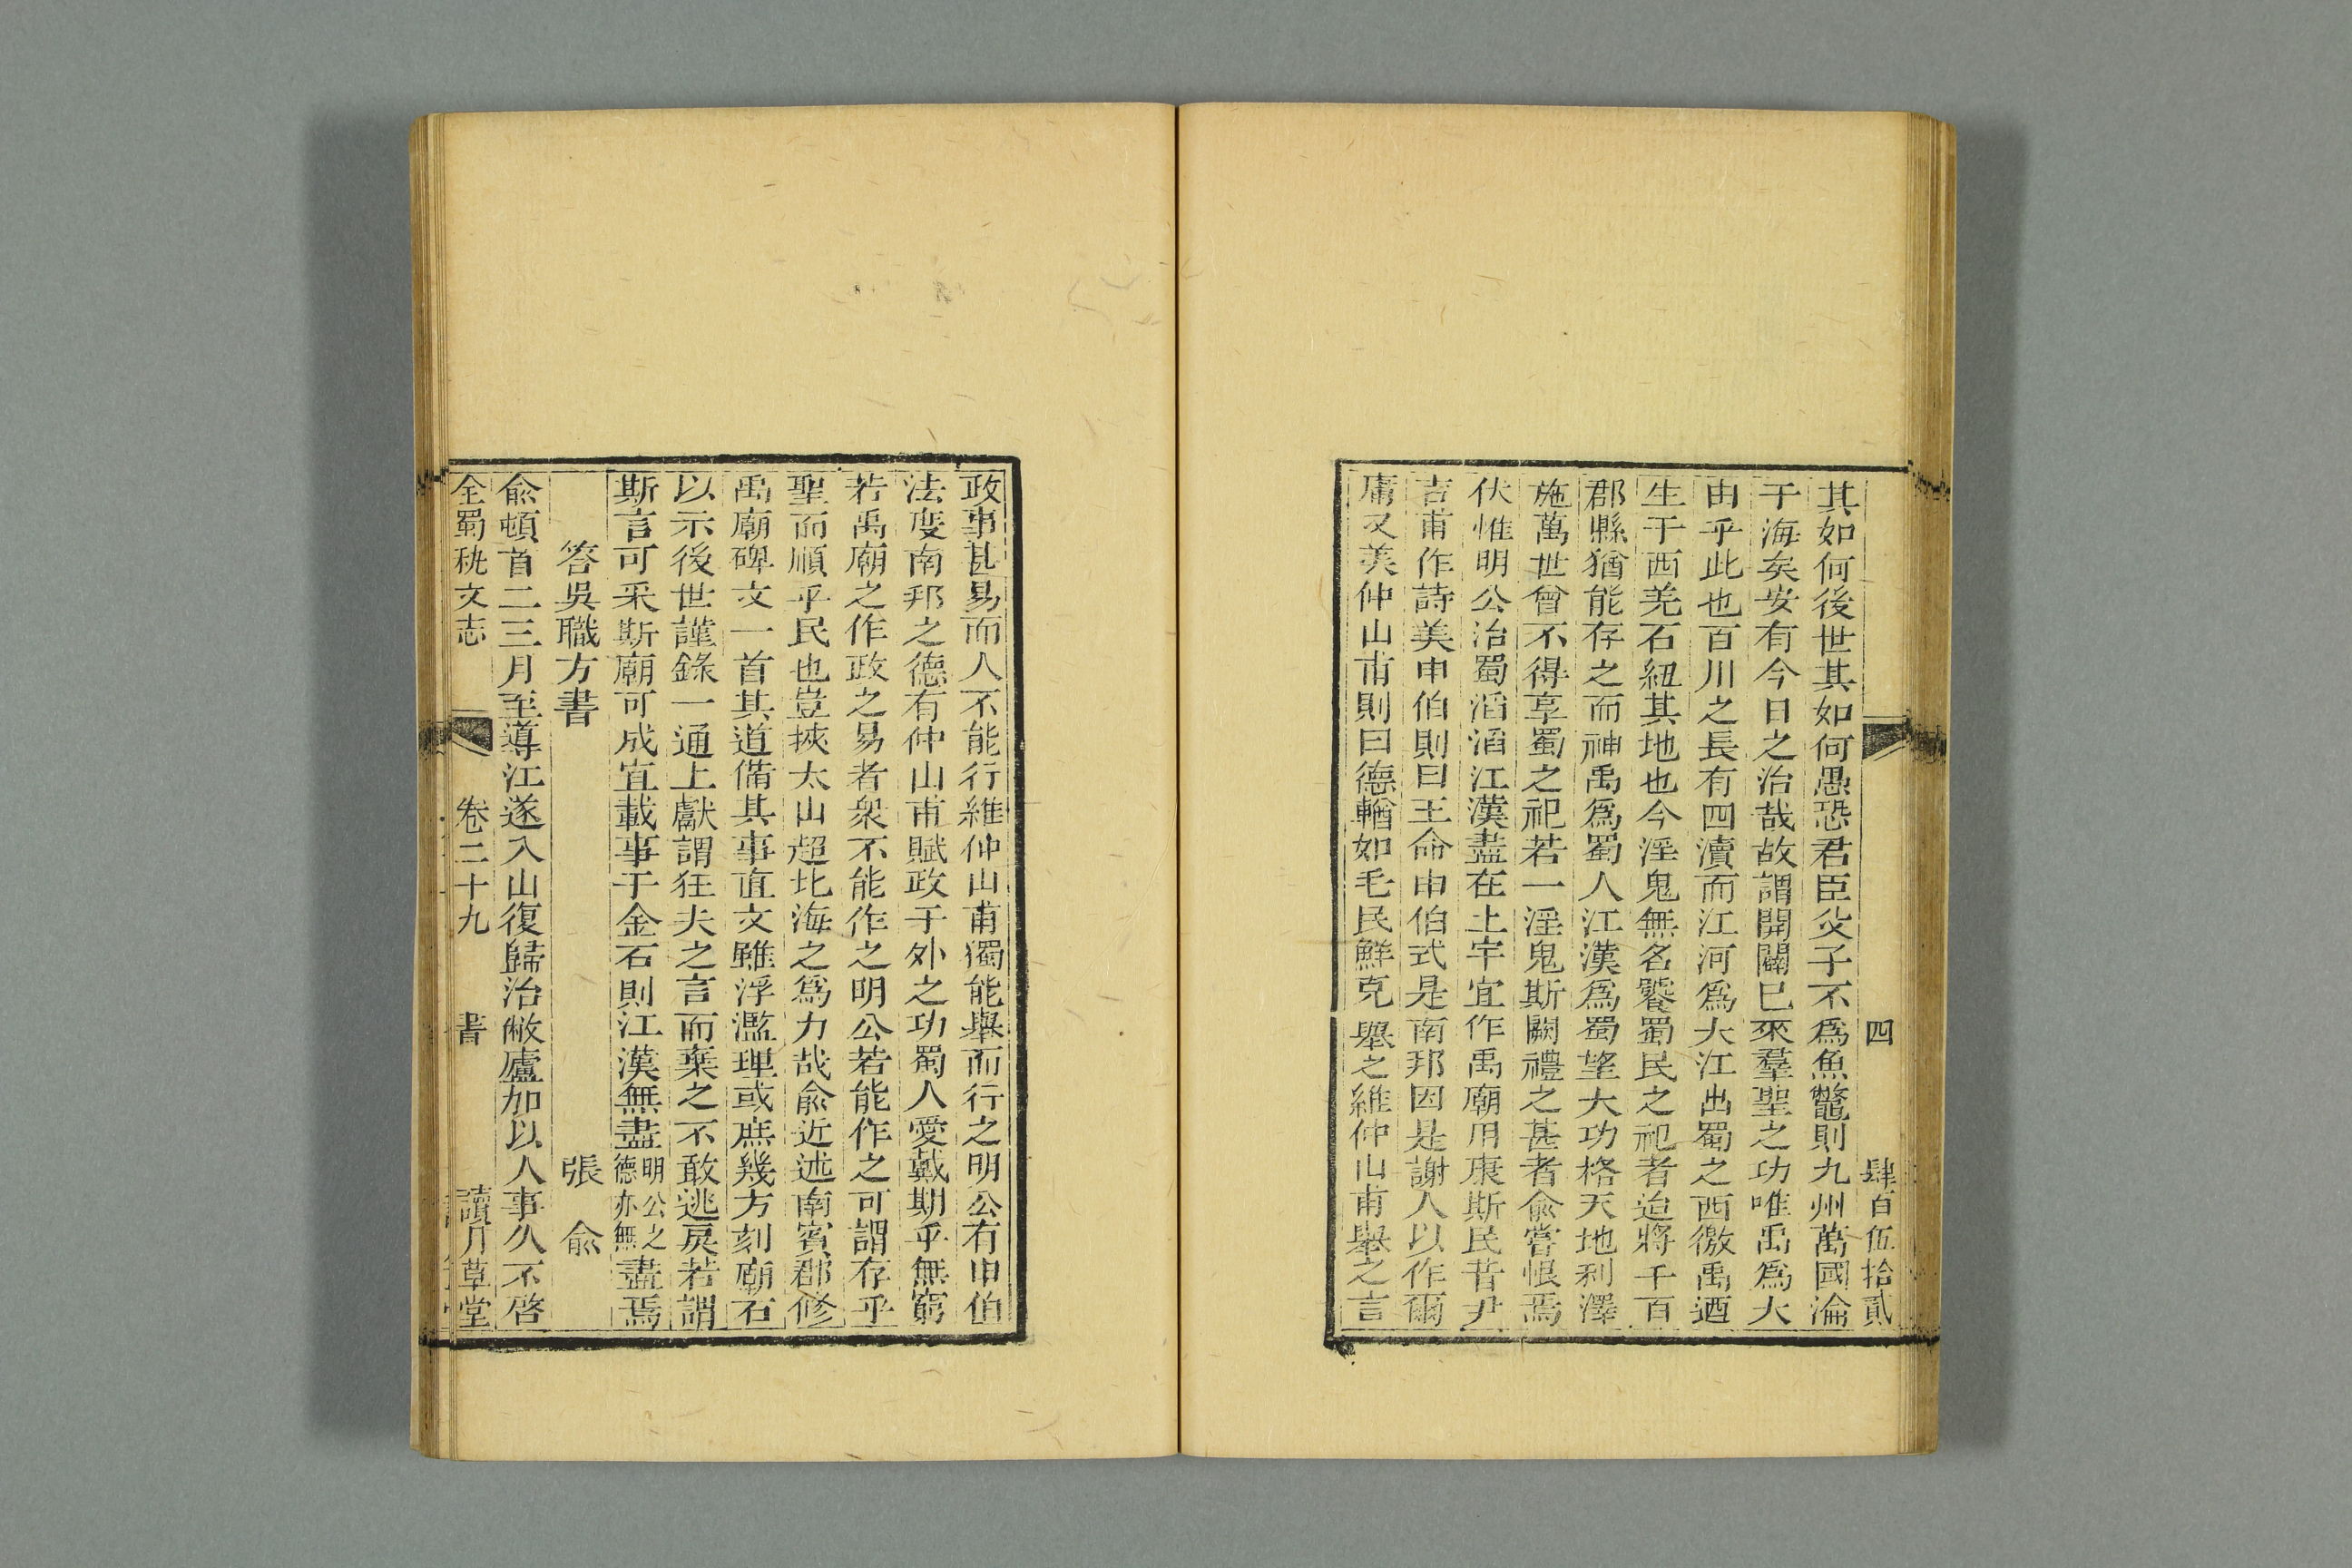 四 肆百伍拾貳
其如何後世其如何愚恐君臣父子不爲魚鼈則九州萬國淪
于海矣安有今日之治哉故謂開闢已來羣聖之功唯禹爲大
由乎此也百川之長有四瀆而江河爲大江出蜀之西徼禹迺
生于西羌石紐其地也今淫鬼無名饕蜀民之祀者迨將千百
郡縣猶能存之而神禹爲蜀人江漢爲蜀望大功格天地利澤
施萬世曾不得享蜀之祀若一淫鬼斯闕禮之甚者俞嘗恨焉
伏惟明公治蜀滔滔江漢盡在土宇宜作禹廟用康斯民昔尹
吉甫作詩美申伯則曰王命申伯式是南邦因是謝人以作爾
庸又美仲山甫則曰德輶如毛民鮮克舉之維仲山甫舉之言
政事甚易而人不能行維仲山甫獨能舉而行之明公有申伯
法度南邦之德有仲山甫賦政于外之功蜀人愛戴期乎無窮
若禹廟之作政之易者衆不能作之明公若能作之可謂存乎
聖而順乎民也豈挾太山超北海之爲力哉俞近述南賓郡修
禹廟碑文一首其道備其事直文雖浮濫理或庶幾方刻廟石
以示後世謹錄一通上獻謂狂夫之言而棄之不敢逃戾若謂
斯言可采斯廟可成宜載事于金石則江漢無盡明公之德亦無盡焉
答吳職方書 張俞
俞頓首二三月至導江遂入山復歸治敝廬加以人事久不啓
全蜀秇文志 卷二十九 書 讀月草堂